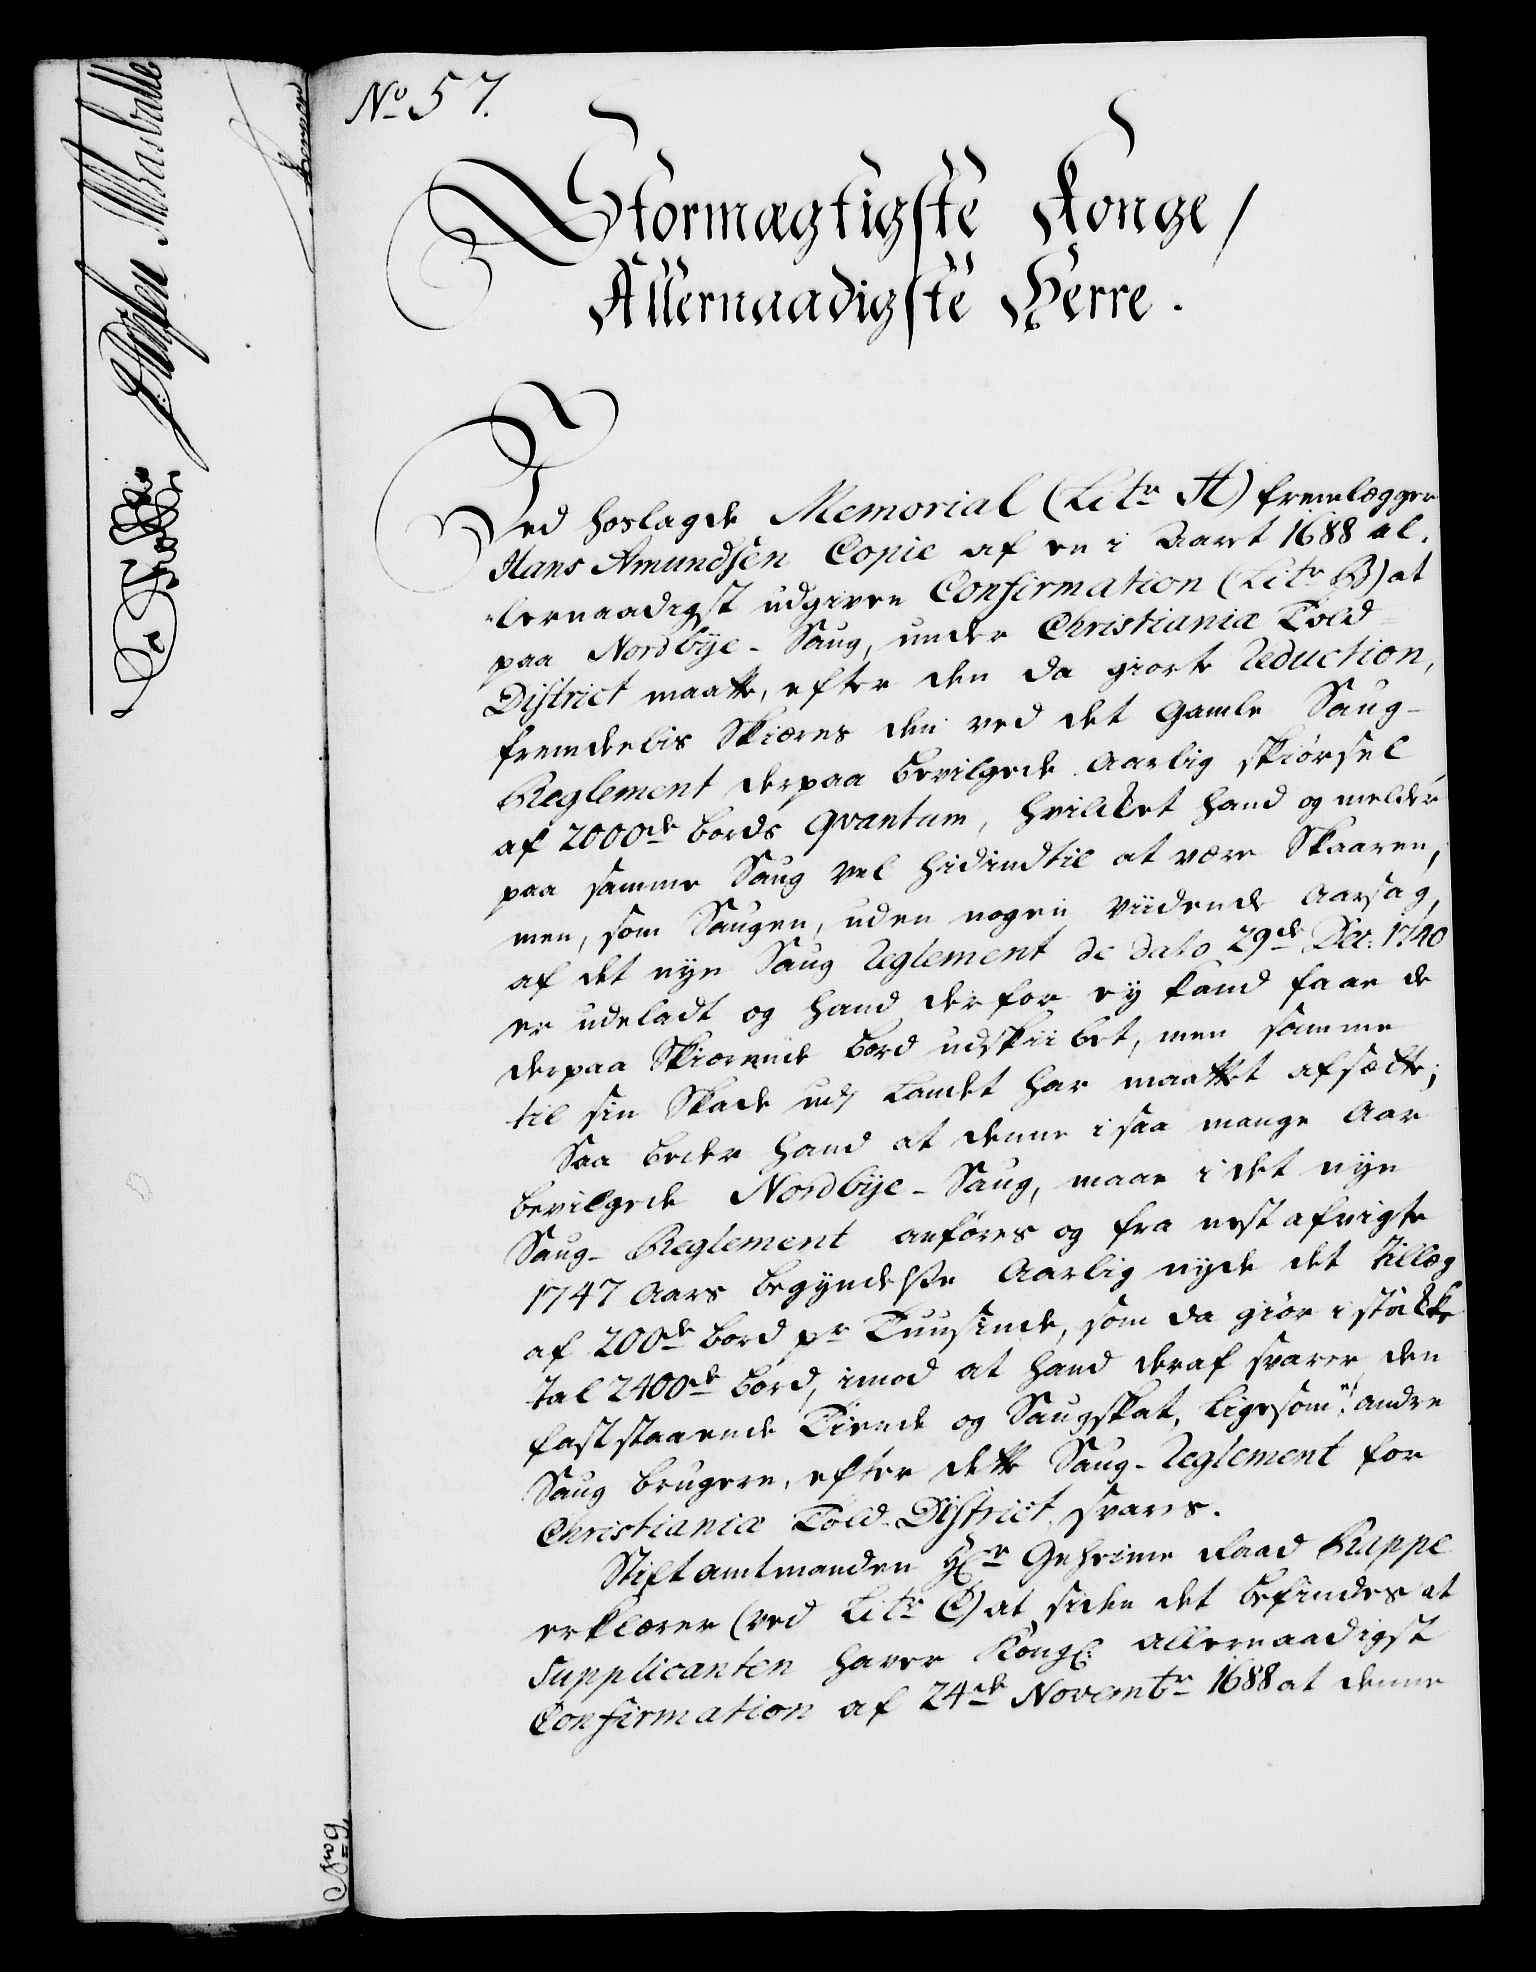 No 57.
Stormægtigste Konge/
Allernaadigste Herre.
Ved hoslagde Memorial (Litr A) fremlægger
Hans Amundsen Copie af en i Aaret 1688 al-
lernaadigst udgiven Confirmation (Litr B) at
paa Nordbÿe-Saug, under Christianiæ Told
District maatte, efter den da giorte Reduction,
fremdeelis Skiæres den ved det gamle Saug-
Reglement derpaa bevilgede Aarlig skiørsel
af 2000de bords qvantum, hvilket hand og melder
paa samme Saug vel hidindtil at være Skaaren,
men, som Saugen, uden nogen viidende aarsag,
af det nye Saug Reglement de dato 29de Dec: 1740
er udeladt og hand derfor eÿ kand faae de
derpaa Skiærende bord udskiibet, men samme
til sin Skade udj Landet har maattet afsætte;
Saa beder hand at denne i saa mange Aar
bevilgede Nordbÿe-Saug, maae i det nye
Saug-Reglement anføres og fra nest afvigte
1747 Aars begyndelse Aarlig nyde det tillæg
af 200de bord pr Tuusinde, som da giør i støkke
tal 2400de bord, imod at hand deraf svarer den
faststaaende Tiende og Saugskat, ligesom andre
Saug brugere, efter dette Saug-Reglement for
Christianiæ Told-District, svarer.
Stiftamtmanden Hr Geheime Raad Rappe
erklærer (ved Litr C) at siden det befindes at
Supplicanten haver Kongl: allernaadigst
Confirmation af 24de Novembr 1688 at denne